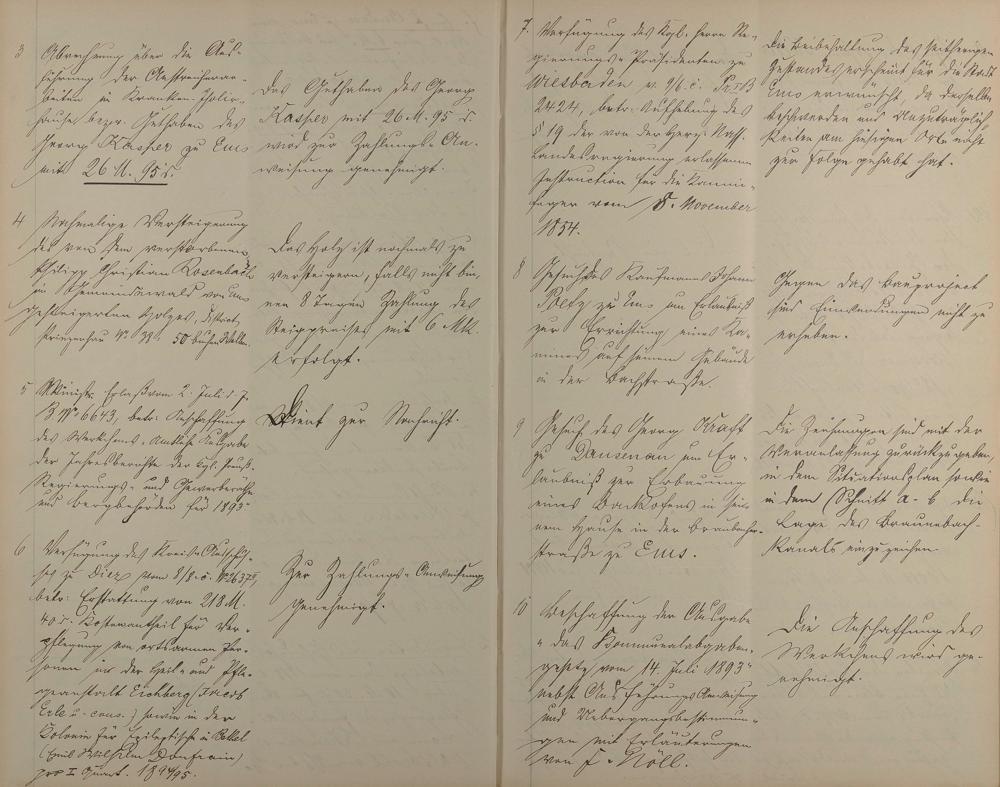 3 Abrechnung über die Aus-
führung der Anstreicherar-
beiten im Kranken-Isolir-
hause bezw. Guthaben des
Georg Kasper zu Ems
mit 26 M. 95 d.
Das Guthaben des Georg
Kasper mit 26 M. 95 d.
wird zur Zahlungs-An-
weisung genehmigt.
4 Nochmalige Versteigerung
des von dem verstorbenen
Philipp Christian Rosenbach
im Gemeindewald von Ems
gesteigerten Holzes, District
N. 38. 50 buchen Wellen.
Das Holz ist nochmals zu
versteigern, falls nicht bin-
nen 8 Tagen Zahlung des
Steigpreises mit 6 Mk.
erfolgt.
5 Minist. Erlaß vom 2. Juli d. J.
B. No 6643, betr. Anschaffung
des Werkchens: Amtliche Ausgabe
der Jahresberichte der Kgl. Preuß.
Regierungs- und Gewerberäthe
und Bergbehörden für 1893
Dient zur Nachricht.
6 Verfügung des Kreis-Ausschus-
ses zu Diez vom 8/8. c. No 2637 II,
betr. Erstattung von 218 M.
40 d. Kostenantheil für Ver-
pflegung von ortsarmen Per-
sonen in der Heil- und Pfle-
geanstalt Eichberg (Jacob
Erle u. cons.) sowie in der
Kolonie für Epileptische in
(Emil Wilhelm)
pro I Quart. 1894/95.
Zur Zahlungs-Anweisung
genehmigt.
7. Verfügung des Kgl. Herrn Re-
gierungs-Präsidenten zu
Wiesbaden v. 9/6. c. Pr. I B
2424, betr. Aufhebung des
§ 19 der von der Herz. Nass.
Landesregierung erlassenen
Instruction für die Kamin-
feger vom 8. November
1854.
Die Beibehaltung des seitherigen
Zustandes erscheint für die Stadt
Ems erwünscht, da derselbe
Beschwerden und Unzuträglich-
keiten am hiesigen Orte nicht
zur Folge gehabt hat.
8 Gesuch des Kaufmanns Johann
Pletz zu Ems um Erlaubniß
zur Errichtung eines Ka-
mines auf seinem Gebäude
in der Bachstraße.
Gegen das Bauproject
sind Einwendungen nicht zu
erheben.
9 Gesuch des Georg Kraft
zu Dausenau um Er-
laubniß zur Erbauung
eines Backofens in sei-
nem Hause in der Braubacher-
straße zu Ems.
Die Zeichnungen sind mit der
Veranlassung zurückzugeben,
in dem Situationsplan sowie
in dem Schnitt a-b die
Lage des Braunebach-
kanals einzuzeichnen.
10 Beschaffung der Ausgabe
"das Kommunalabgaben-
gesetz vom 14. Juli 1893"
nebst Ausführungs-Anweisung
und Uebergangsbestimmun-
gen mit Erläuterungen
von F. Nöll.
Die Anschaffung des
Werkchens wird ge-
nehmigt.